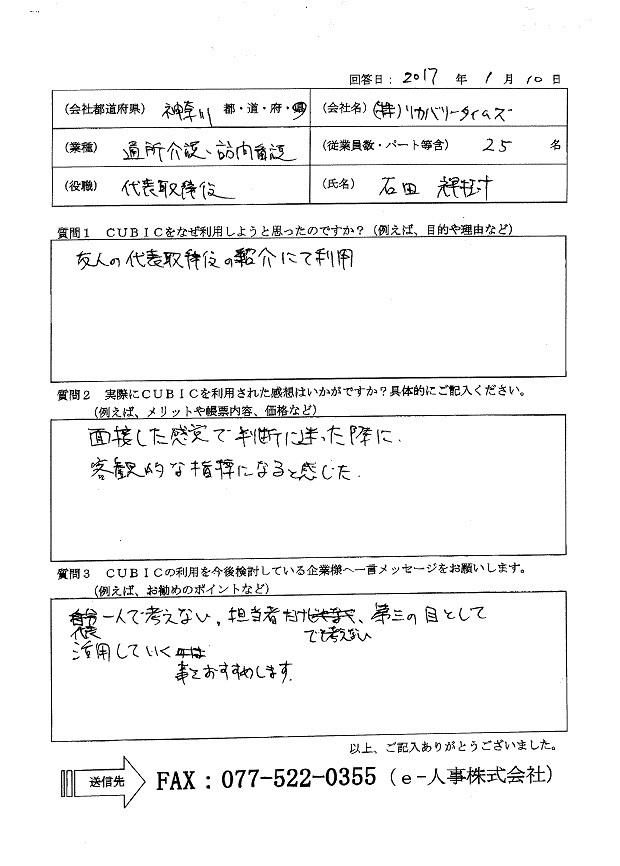 回答日： 2017 年 1 月 10 日
（会社都道府県） 神奈川 都・道・府・県 （会社名） (株)リカバリータイムズ
（業種） 通所介護、訪問看護 （従業員数・パート等含） 25 名
（役職） 代表取締役 （氏名） 石田
質問１ ＣＵＢＩＣをなぜ利用しようと思ったのですか？（例えば、目的や理由など）
友人の代表取締役の紹介にて利用
質問２ 実際にＣＵＢＩＣを利用された感想はいかがですか？具体的にご記入ください。
（例えば、メリットや帳票内容、価格など）
面接した感覚で判断に迷った際に、
客観的な指標になると感じた.
質問３ ＣＵＢＩＣの利用を今後検討している企業様へ一言メッセージをお願いします。
（例えば、お勧めのポイントなど）
自分一人で考えない。担当者だけじゃなく、第三の目として
代表 でも考えない
活用していく
事をおすすめします.
以上、ご記入ありがとうございました。
送信先 FAX：077-522-0355（e-人事株式会社）